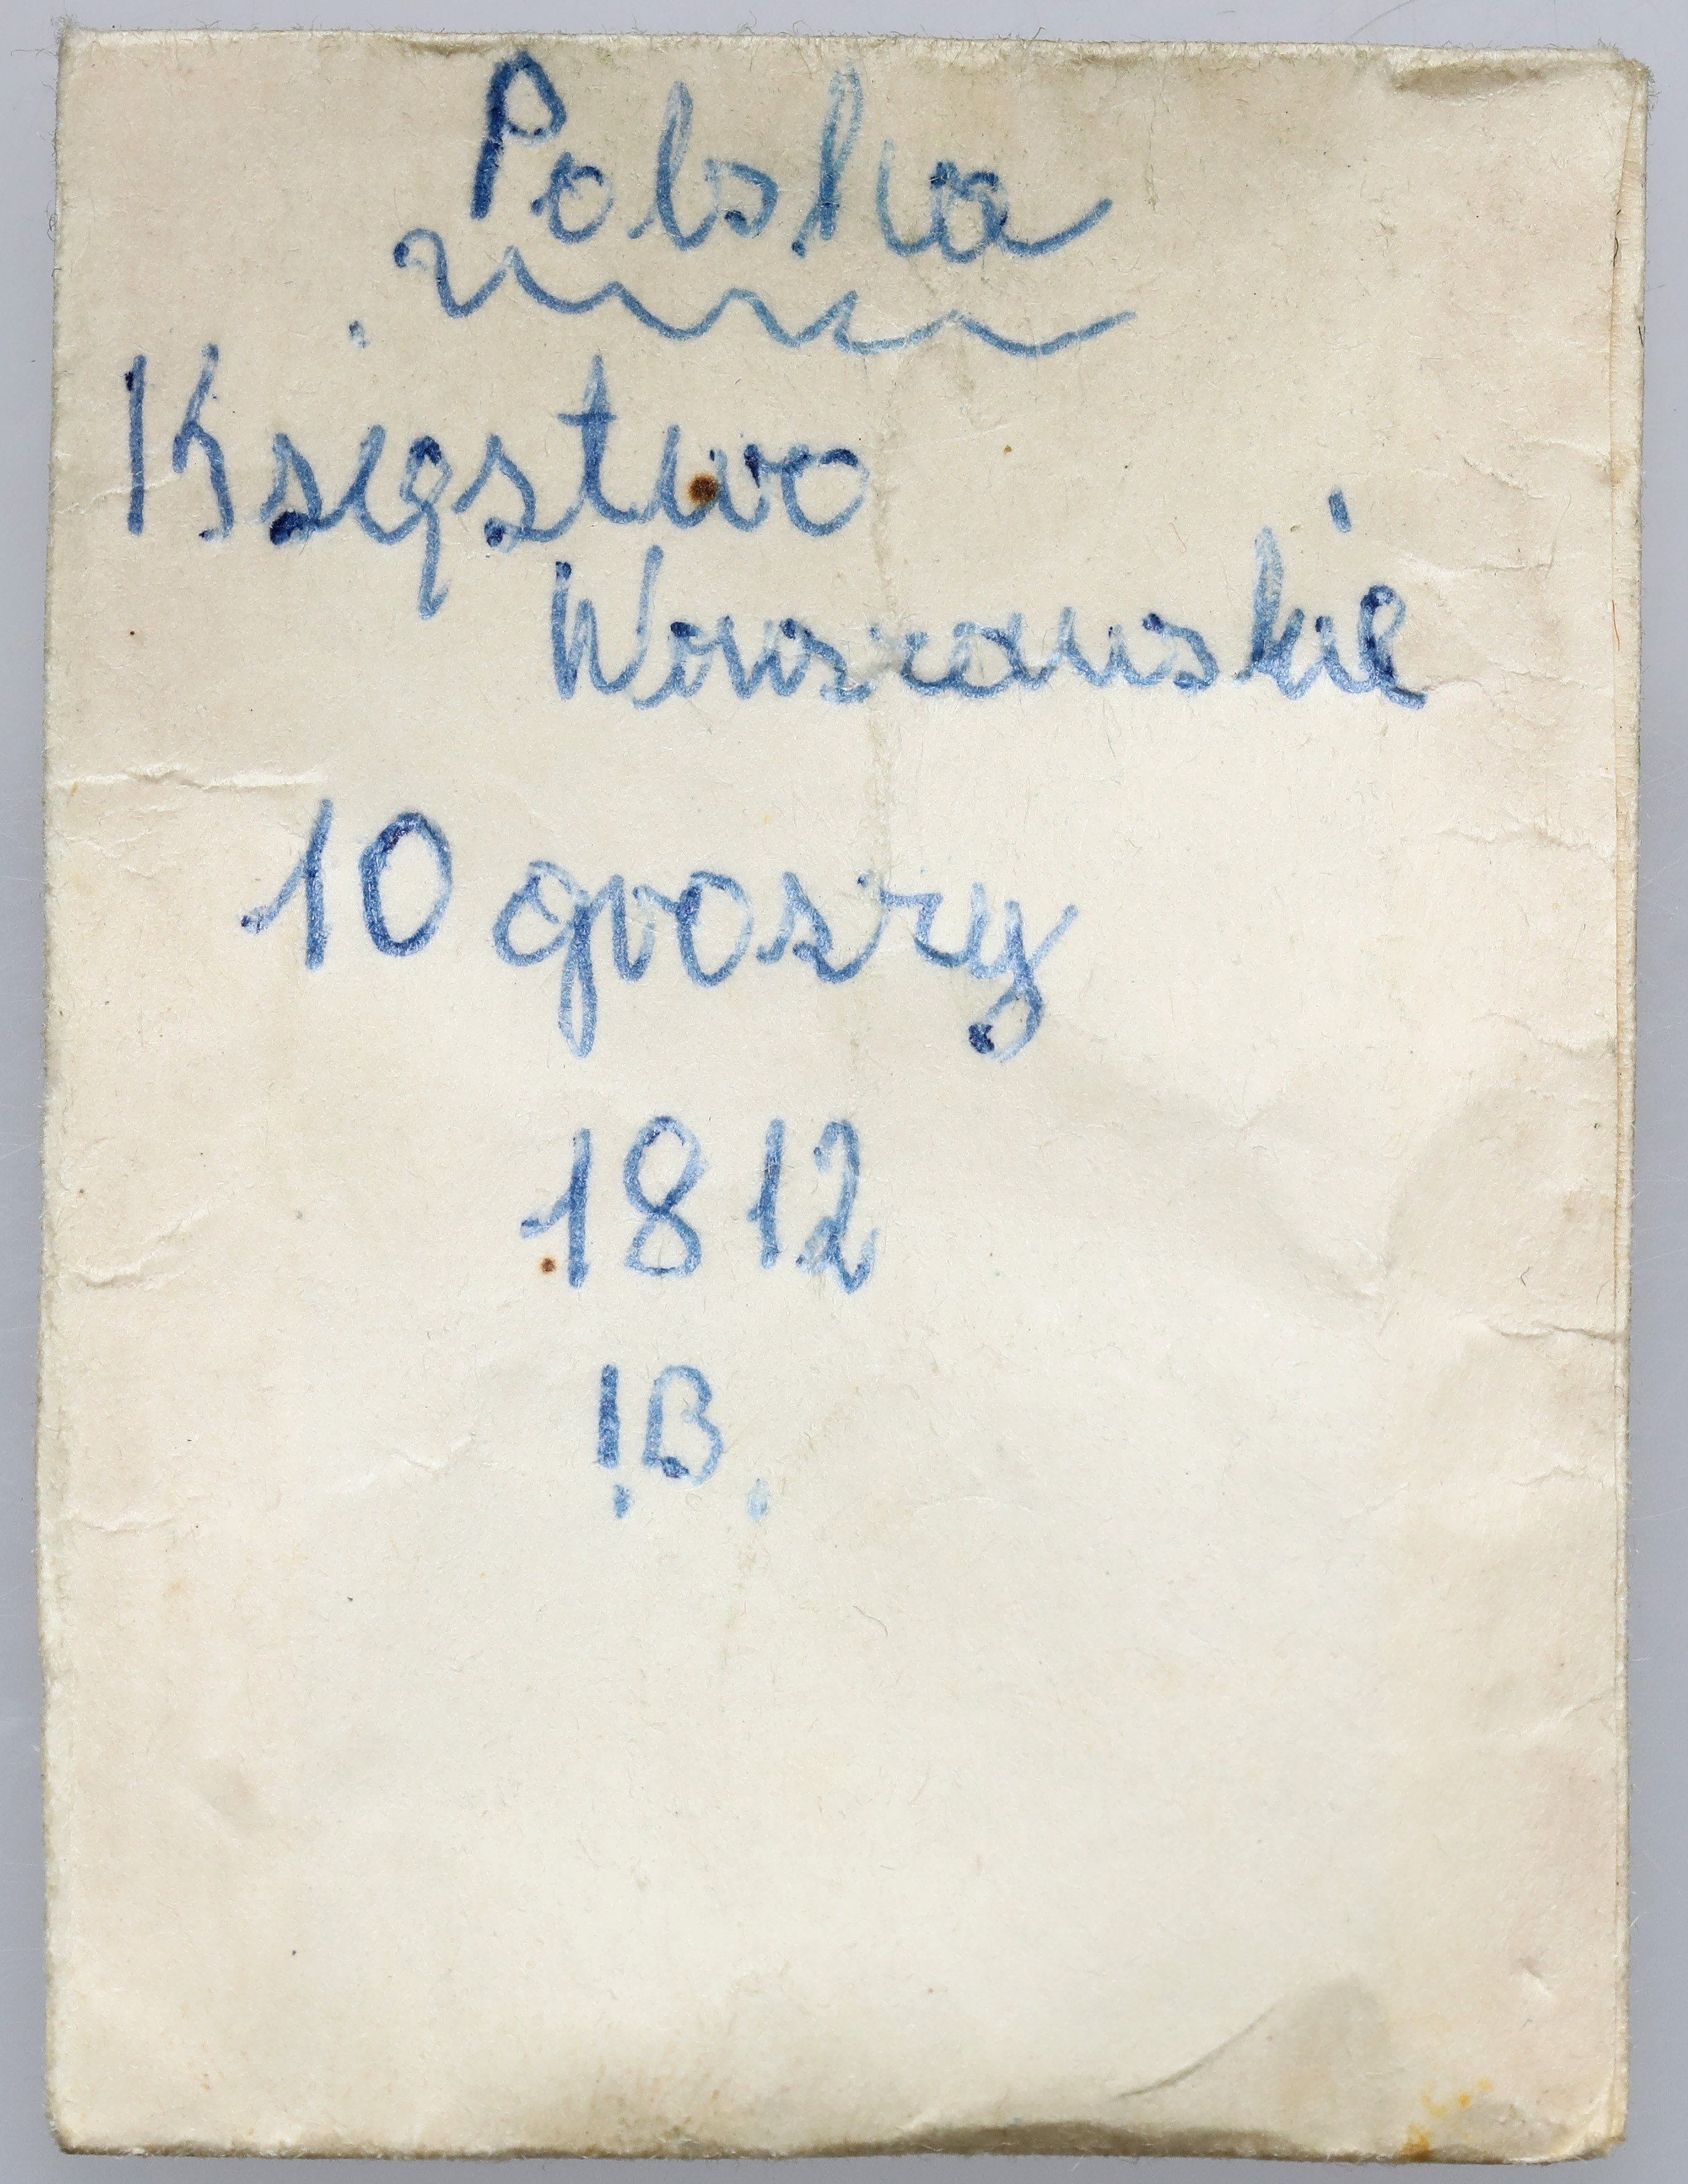 Polska
Księstwo
Warszawskie
10 groszy
1812
I.B.